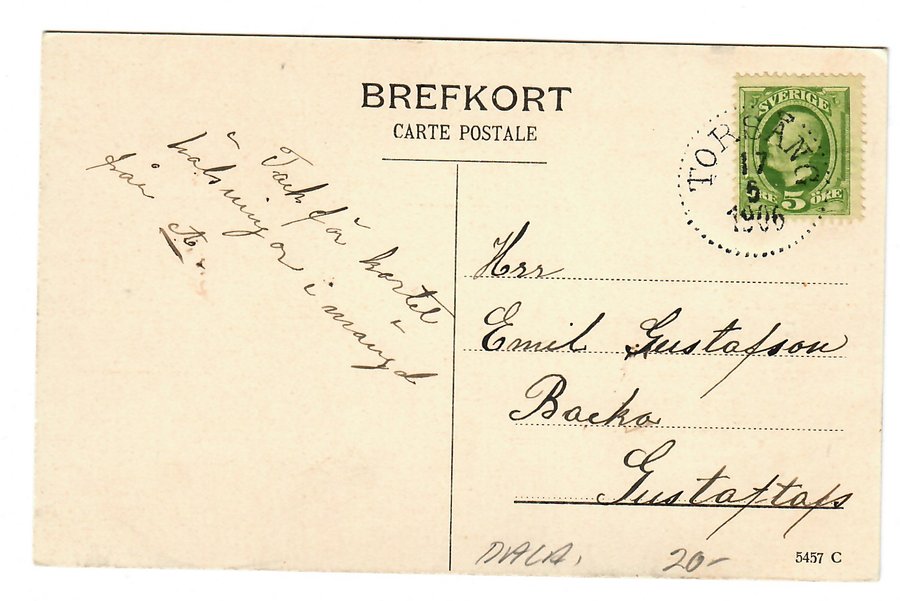 BREFKORT
CARTE POSTALE
SVERIGE
5 ÖRE
TORSÅNG
17
5
1906
Tack för kortet
hälsningar i mängd
från A.
Herr
Emil Gustafson
Backa
Gustaffafs
DALA.
20-
5457 C